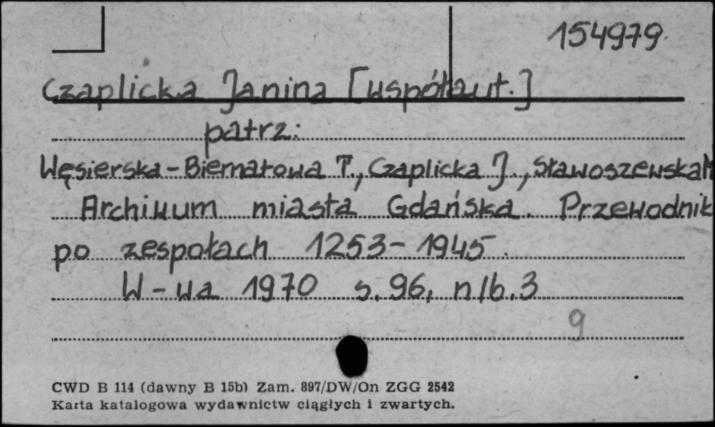 154979
Czaplicka Janina [współaut.]
patrz:
Węsierska-Biernatowa T., Czaplicka J., Sławoszewska M
Archiwum miasta Gdańska. Przewodnik
po zespołach 1253-1945.
W-wa 1970 s. 96, nlb. 3
9
CWD B 114 (dawny B 15b) Zam. 897/DW/On ZGG 2542
Karta katalogowa wydawnictw ciągłych i zwartych.